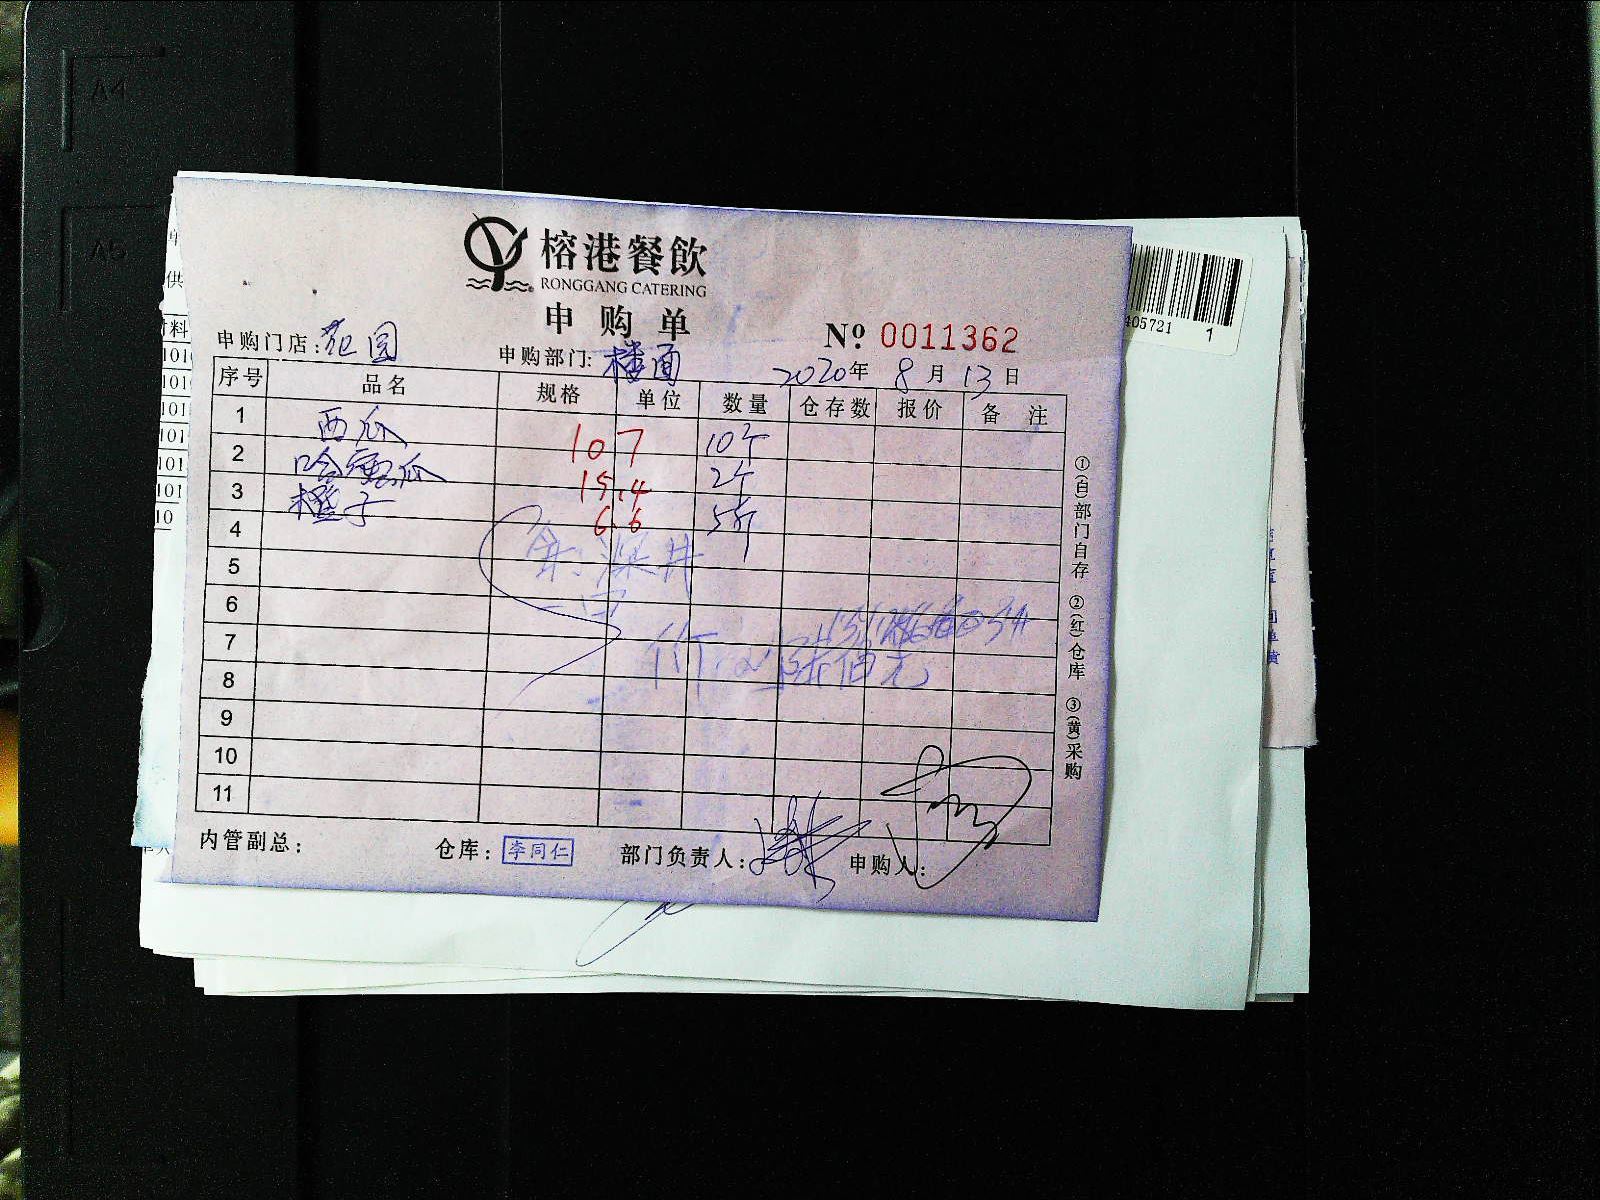 A4
A5
榕港餐飲
RONGGANG CATERING
申购单
№ 0011362
405721 1
申购门店：花园
申购部门：楼面
2020年 8月 13日
序号 品名 规格 单位 数量 仓存数 报价 备注
1 西瓜 107 10个
2 哈密瓜 15.4 2个
3 橙子 6.6 5斤
4
5
6
7
8
9
10
11
①(白)部门自存 ②(红)仓库 ③(黄)采购
内管副总：
仓库：李同仁
部门负责人：
申购人：
供
料
1010
101
101
101
101
101
10